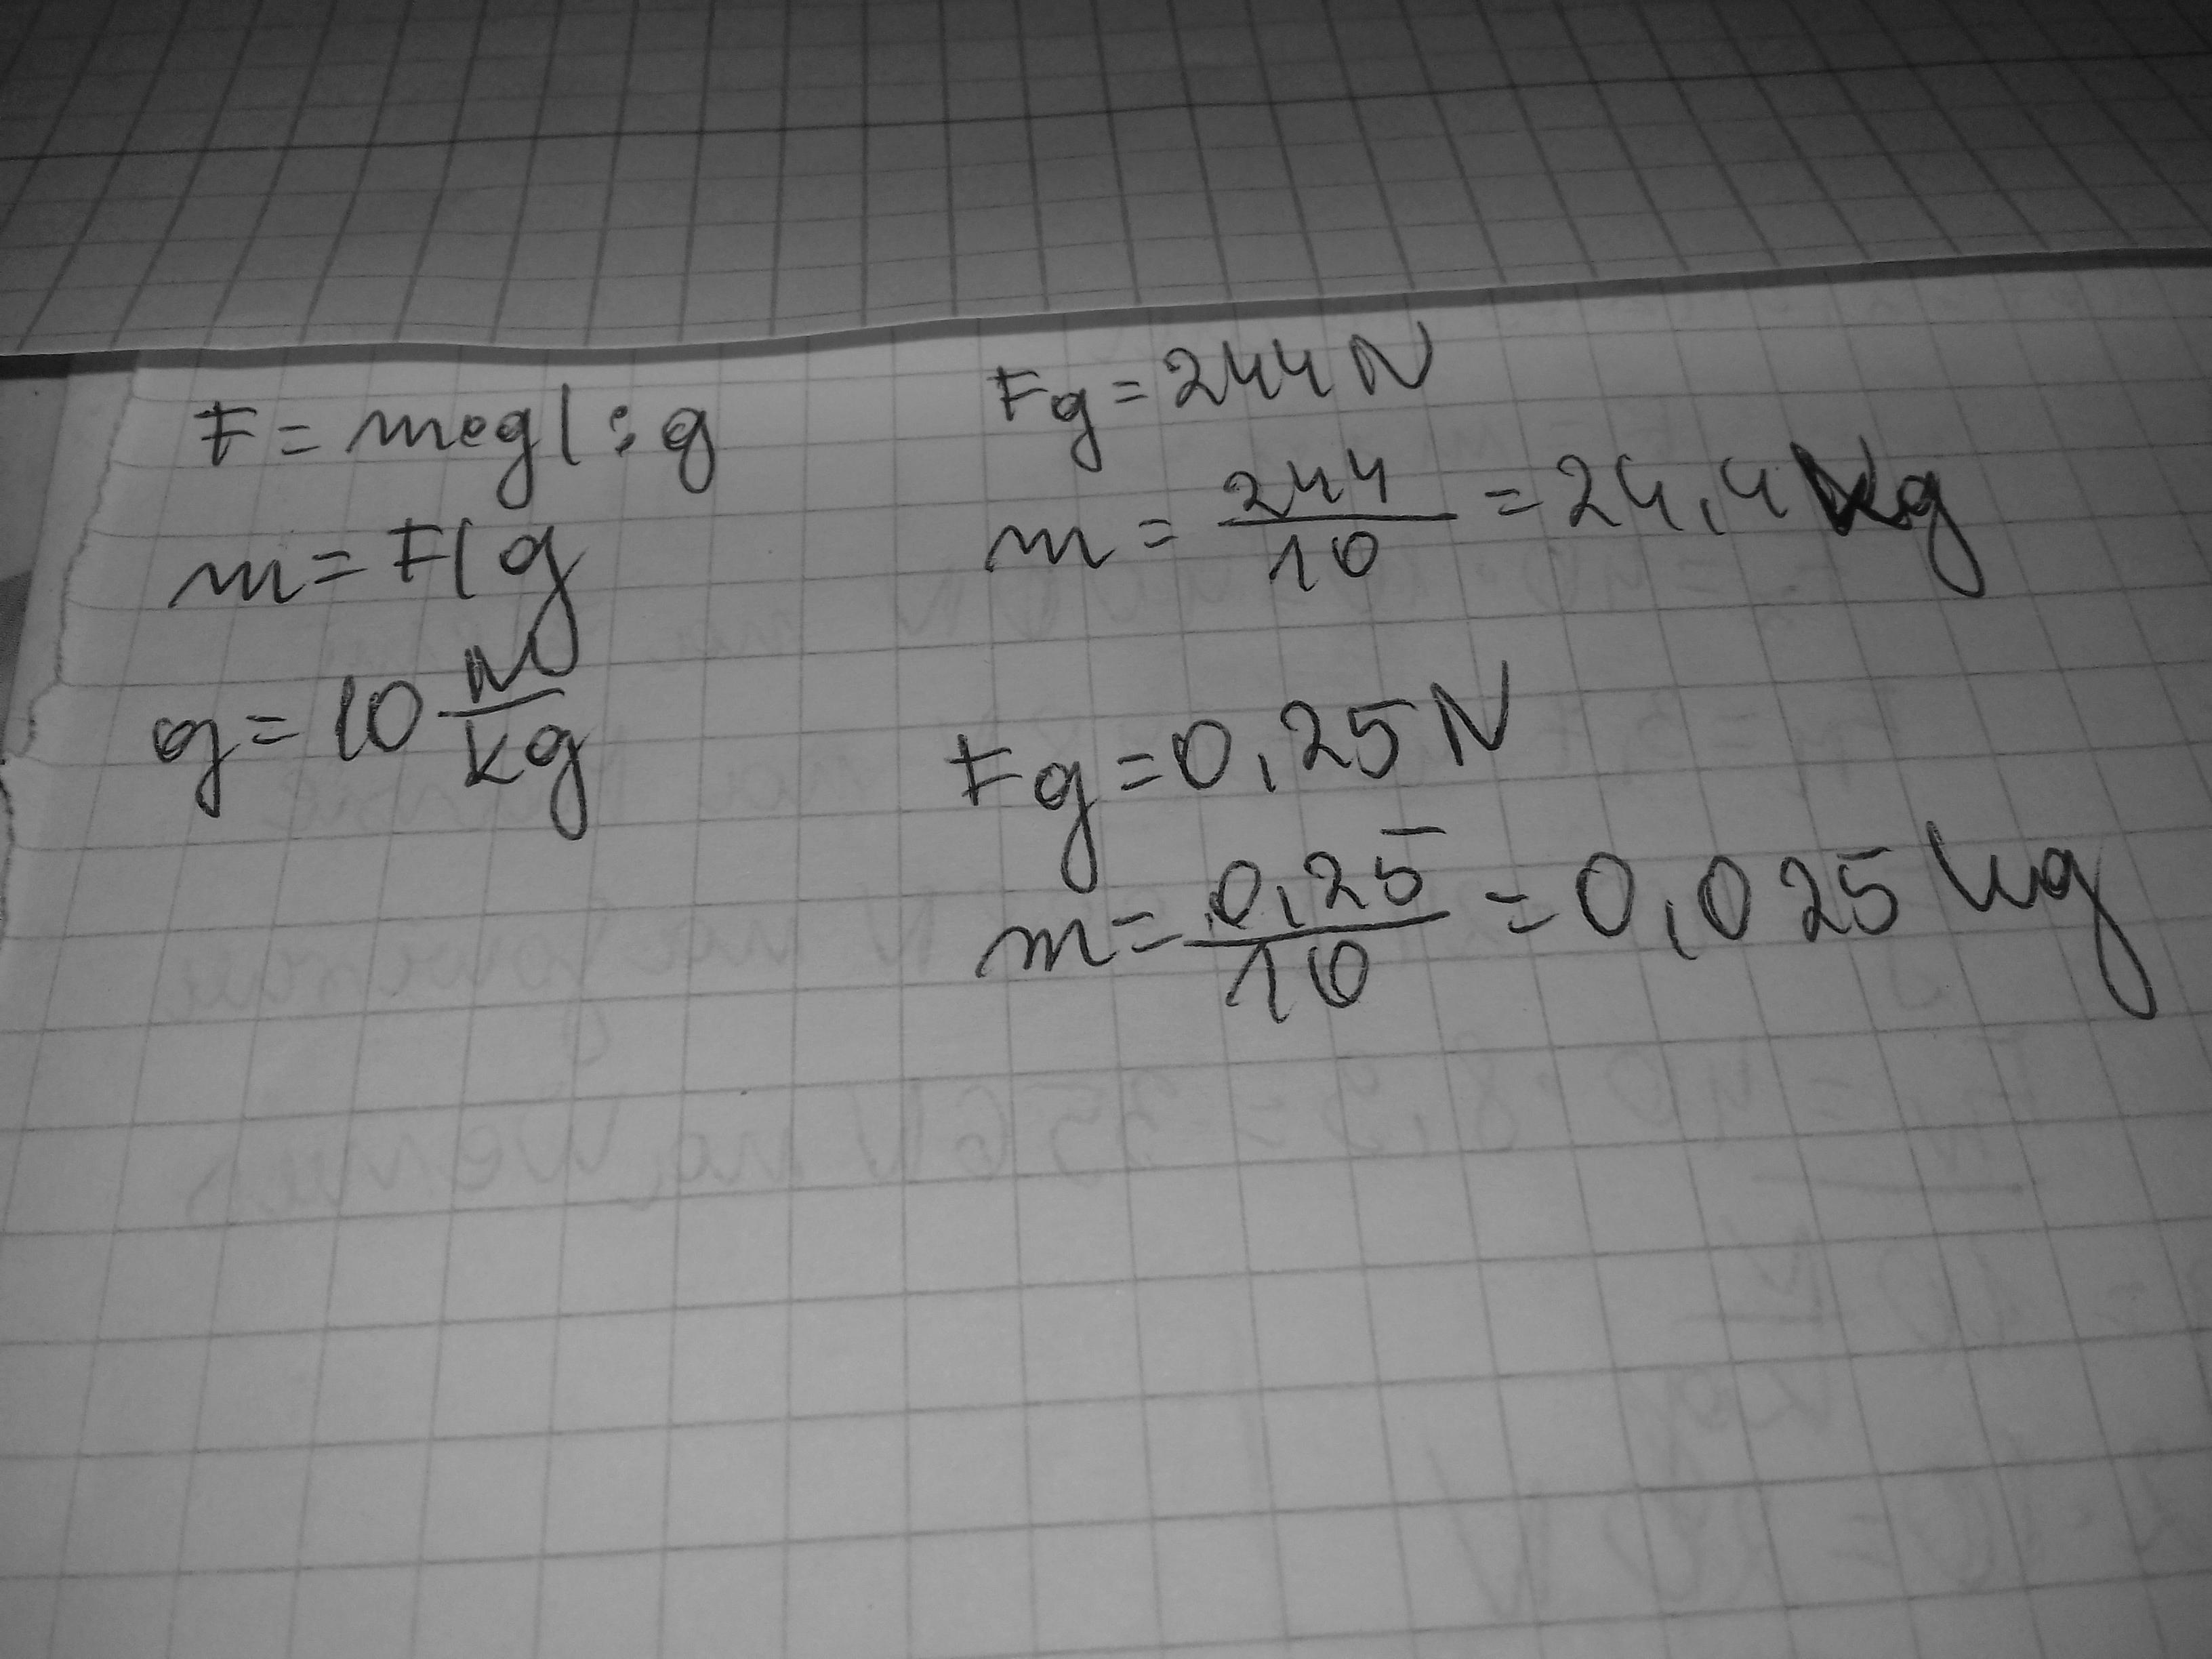 F = m•g | : g
m = F/g
g = 10 N/kg
Fg = 244 N
m = 244/10 = 24,4 kg
Fg = 0,25 N
m = 0,25/10 = 0,025 kg